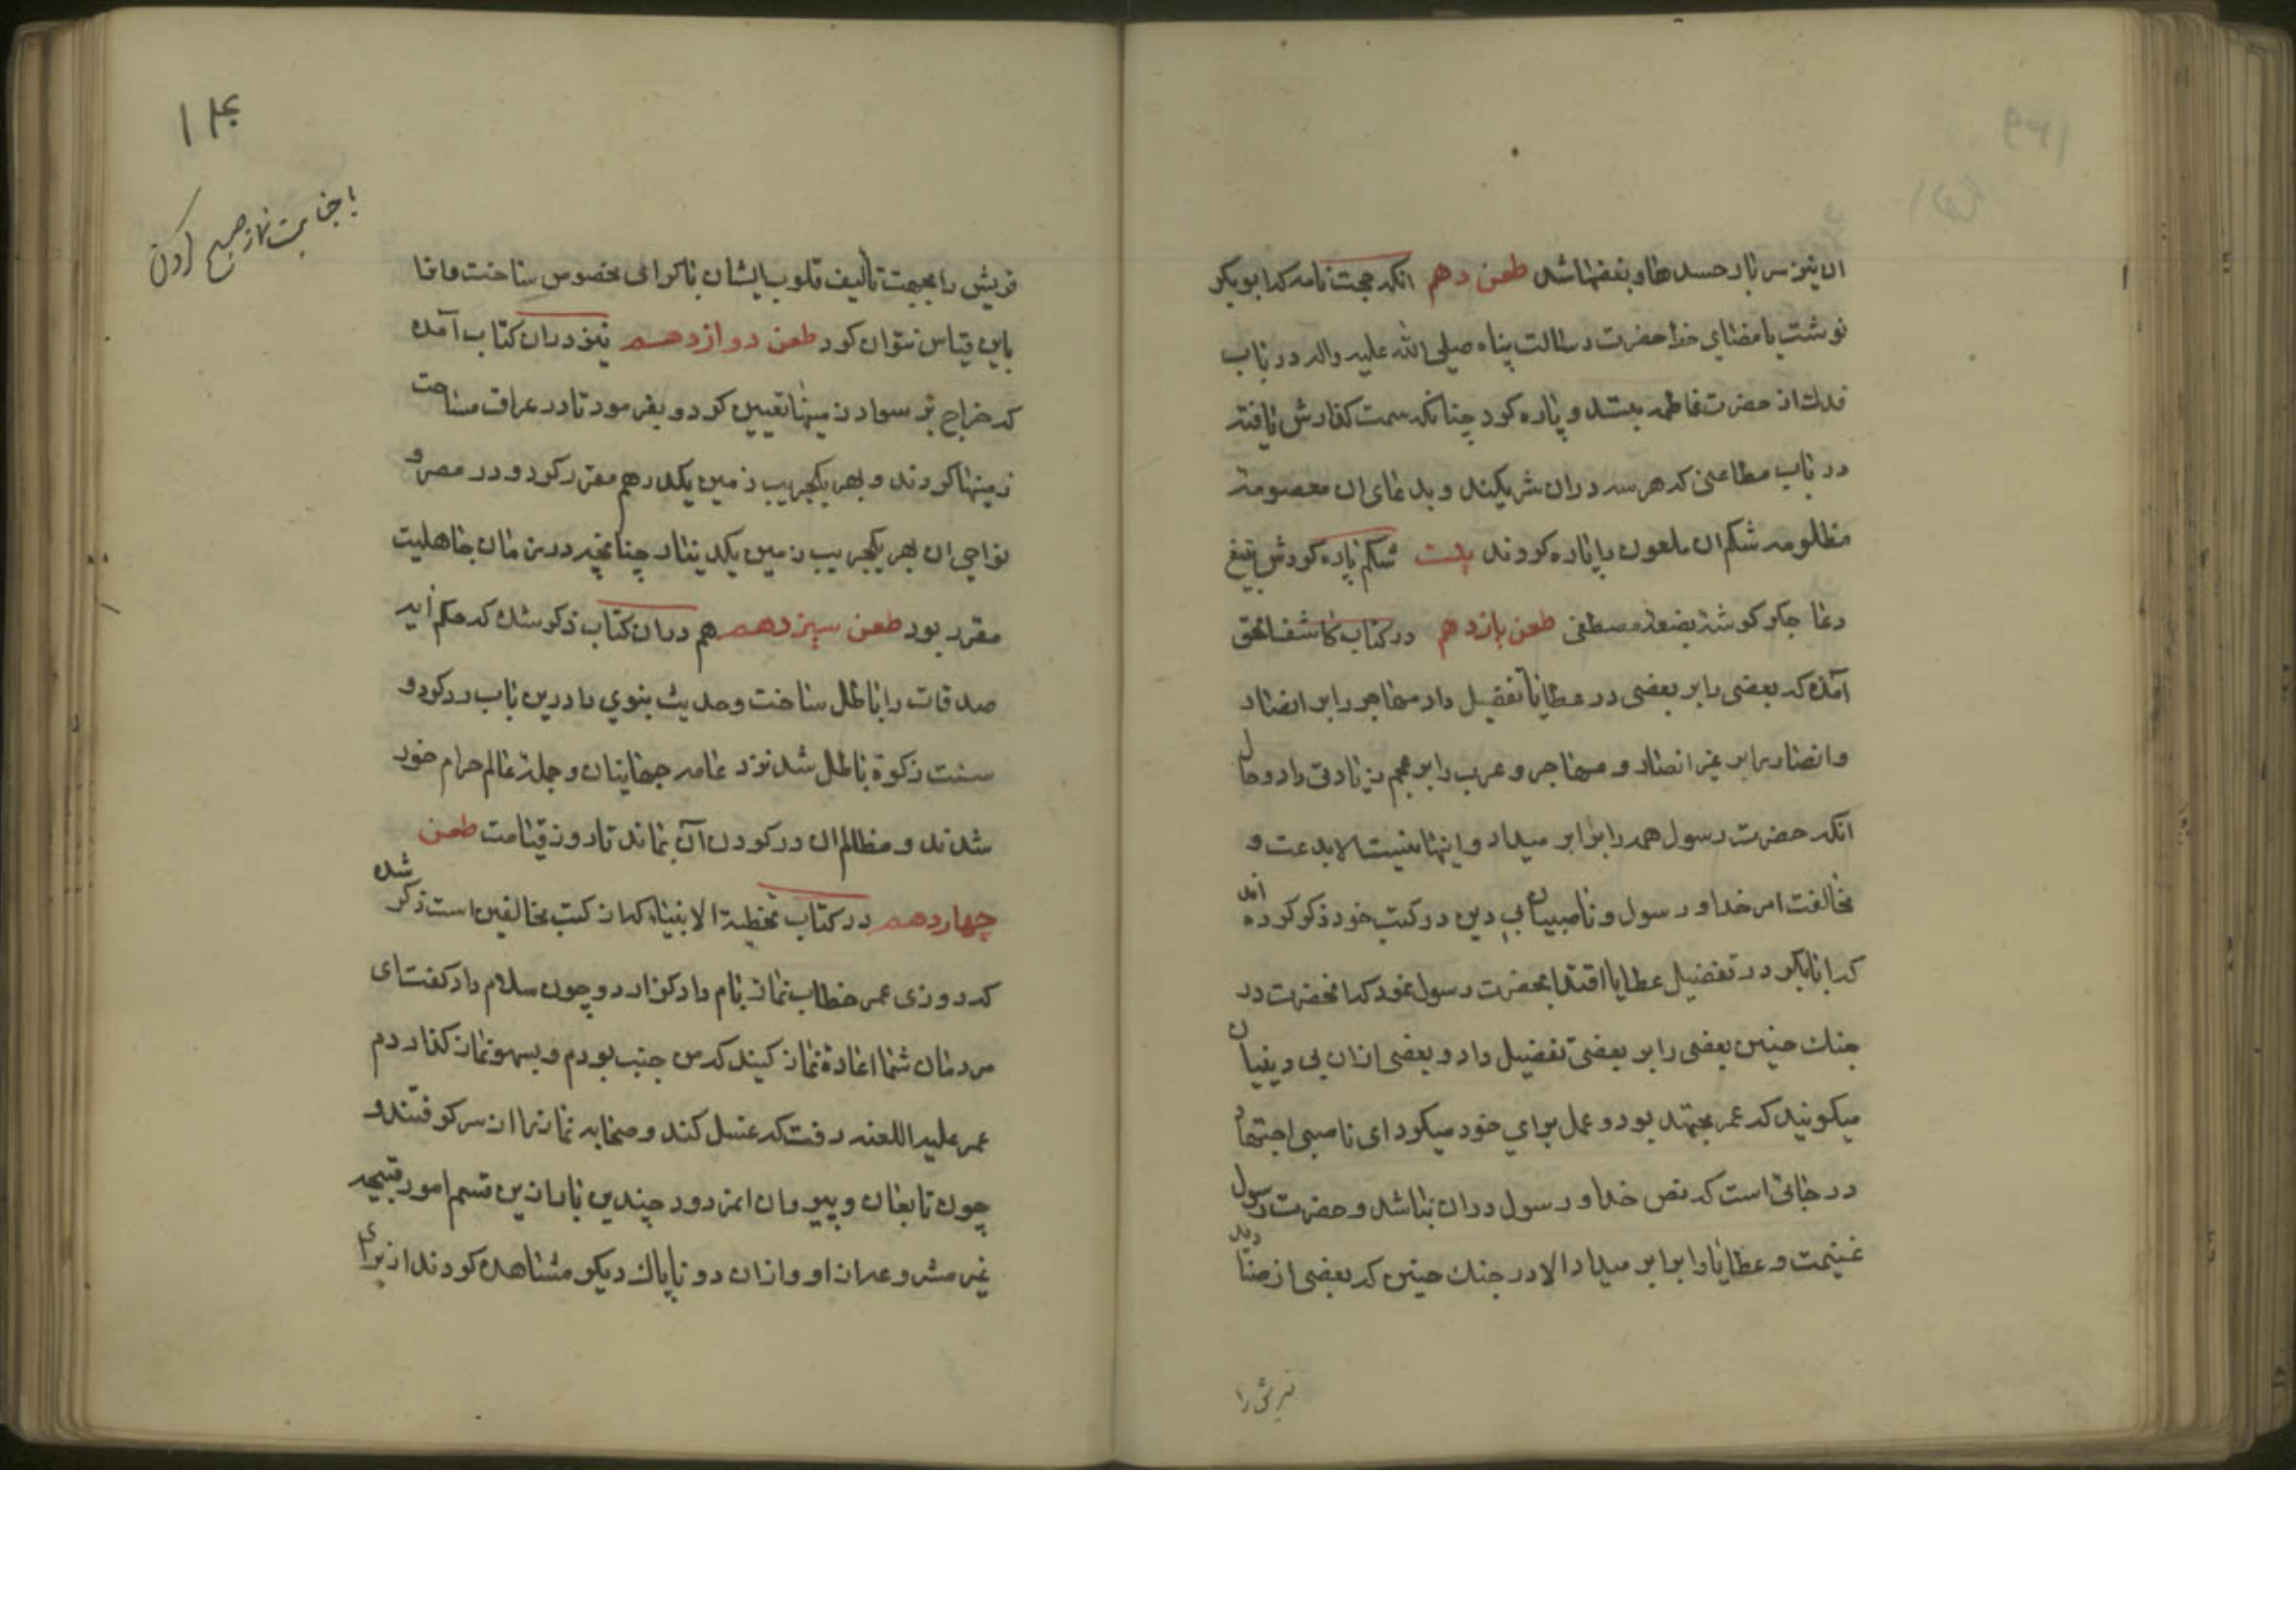 ان نیز سر بار حسدها و بغضها شد طعن دهم انکه حجت نامه که ابوبکر
نوشت بامضای خط حضرت رسالت پناه صلی الله علیه واله در باب
فدك از حضرت فاطمه بستد و پاره کرد چنانکه سمت گذارش یافته
در باب مطاعنی که هر سه دران شریکند و بدعای ان معصومه
مظلومه شکم ان ملعون را پاره کردند بیت شکم پاره کردش بتیغ
دعا جگر گوشه بضعه مصطفی طعن یازدهم در کتاب کاشف الحق
آمده که بعضی را بر بعضی در عطایا تفضیل داد مهاجر را بر انصار
وانصار را بر غیر انصار و مهاجر و عرب را بر عجم زیادتی داد وحال
انکه حضرت رسول همه را برابر میداد و اینها نیست الا بدعت و
مخالفت امر خدا و رسول و ناصبیان بی دین در کتب خود ذکر کرده اند
که ابابکر در تفضیل عطایا اقتدا بحضرت رسول نمود که انحضرت در
جنك حنین بعضی را بر بعضی تفضیل داد و بعضی ازان بی دینیان
میکویند که عمر مجتهد بود و عمل برای خود میکرد ای ناصبی اجتهاد
در جائی است که نص خدا و رسول دران نباشد و حضرت رسول
غنیمت و عطایا را برابر میداد الا در جنك حنین که بعضی از صنادید
قریش را
۱۴۰
با جنابت نماز صبح کردن
قریش را بجهت تألیف قلوب ایشان باکرامی مخصوص ساخت ما را
باین قیاس نتوان کرد طعن دوازدهم نیز دران کتاب آمده
که خراج بر سواد زمینها تعیین کرد و بفرمود تا در عراق مساحت
زمینها کردند و بهر یکجریب زمین یکدرهم مقرر کرد و در مصر و
نواحی ان بهر یکجریب زمین یکدینار چنانچه در زمان جاهلیت
مقرر بود طعن سیزدهم هم دران کتاب ذکر شده که حکم آیه
صدقات را باطل ساخت وحدیث نبوی را درین باب رد کرد و
سنت زکوة باطل شد نزد عامه جهانیان و جمله عالم حرام خور
شدند و مظالم ان در گردن آن بماند تا روز قیامت طعن
چهاردهم در کتاب تخطیة الانبیاء که از کتب مخالفین است ذکر شده
که روزی عمر خطاب نماز بامداد گزارد و چون سلام داد گفت ای
مردمان شما اعادۀ نماز کنید که من جنب بودم و بسهو نماز گذاردم
عمر علیه اللعنه رفت که غسل کند و صحابه نماز را از سر گرفتند و
چون تابعان و پیروان انمردود چندین بار ازین قسم امور قبیحه
غیر مشروعه از او و ازان دو ناپاك دیگر مشاهده کردند از برای